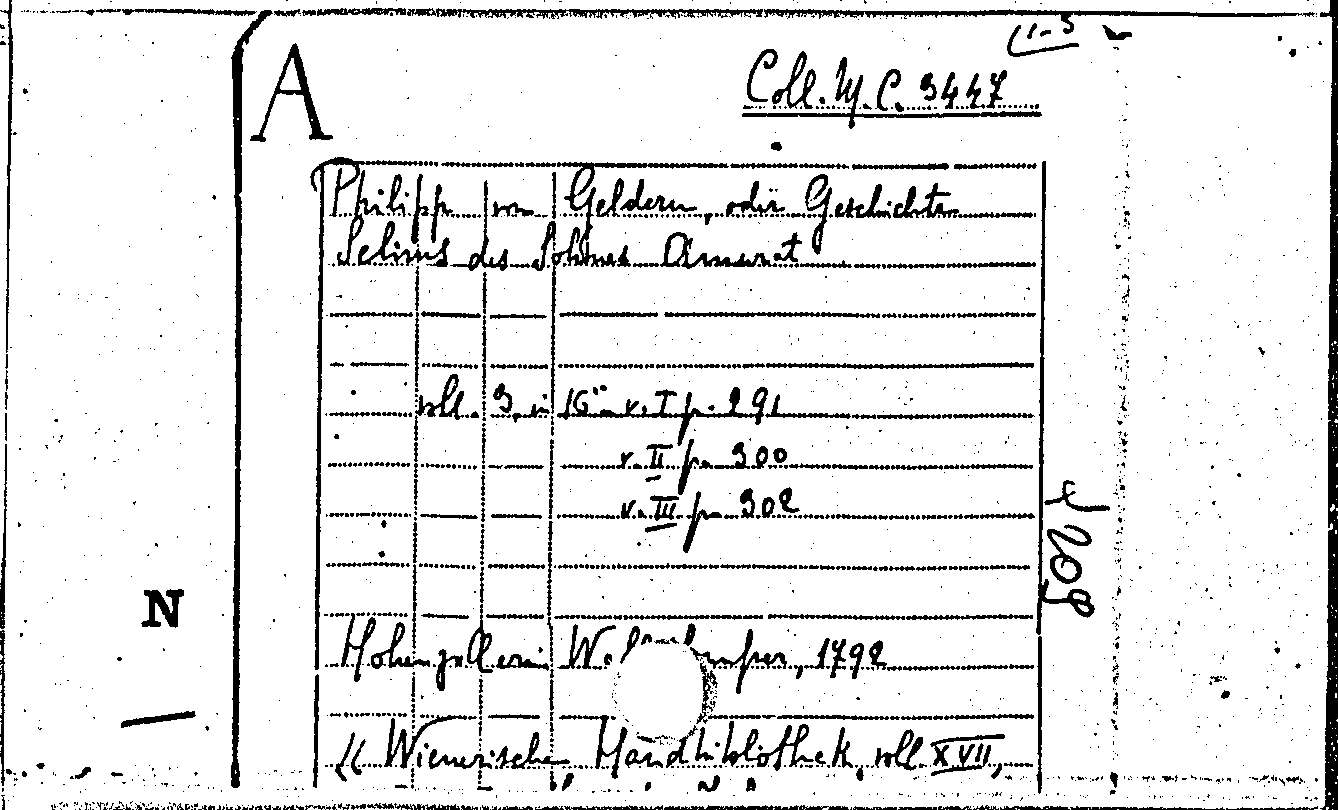 A
Coll. M. C. 3447
Philipp von Geldern, oder Geschichte
Selims des Sohnes Amurat
voll. 3, in 16° v. I p. 291
v. II p. 300
v. III p. 302
N
Hohenzollerin, 1792
(( Wienerische Handbibliothek, voll. XVII,